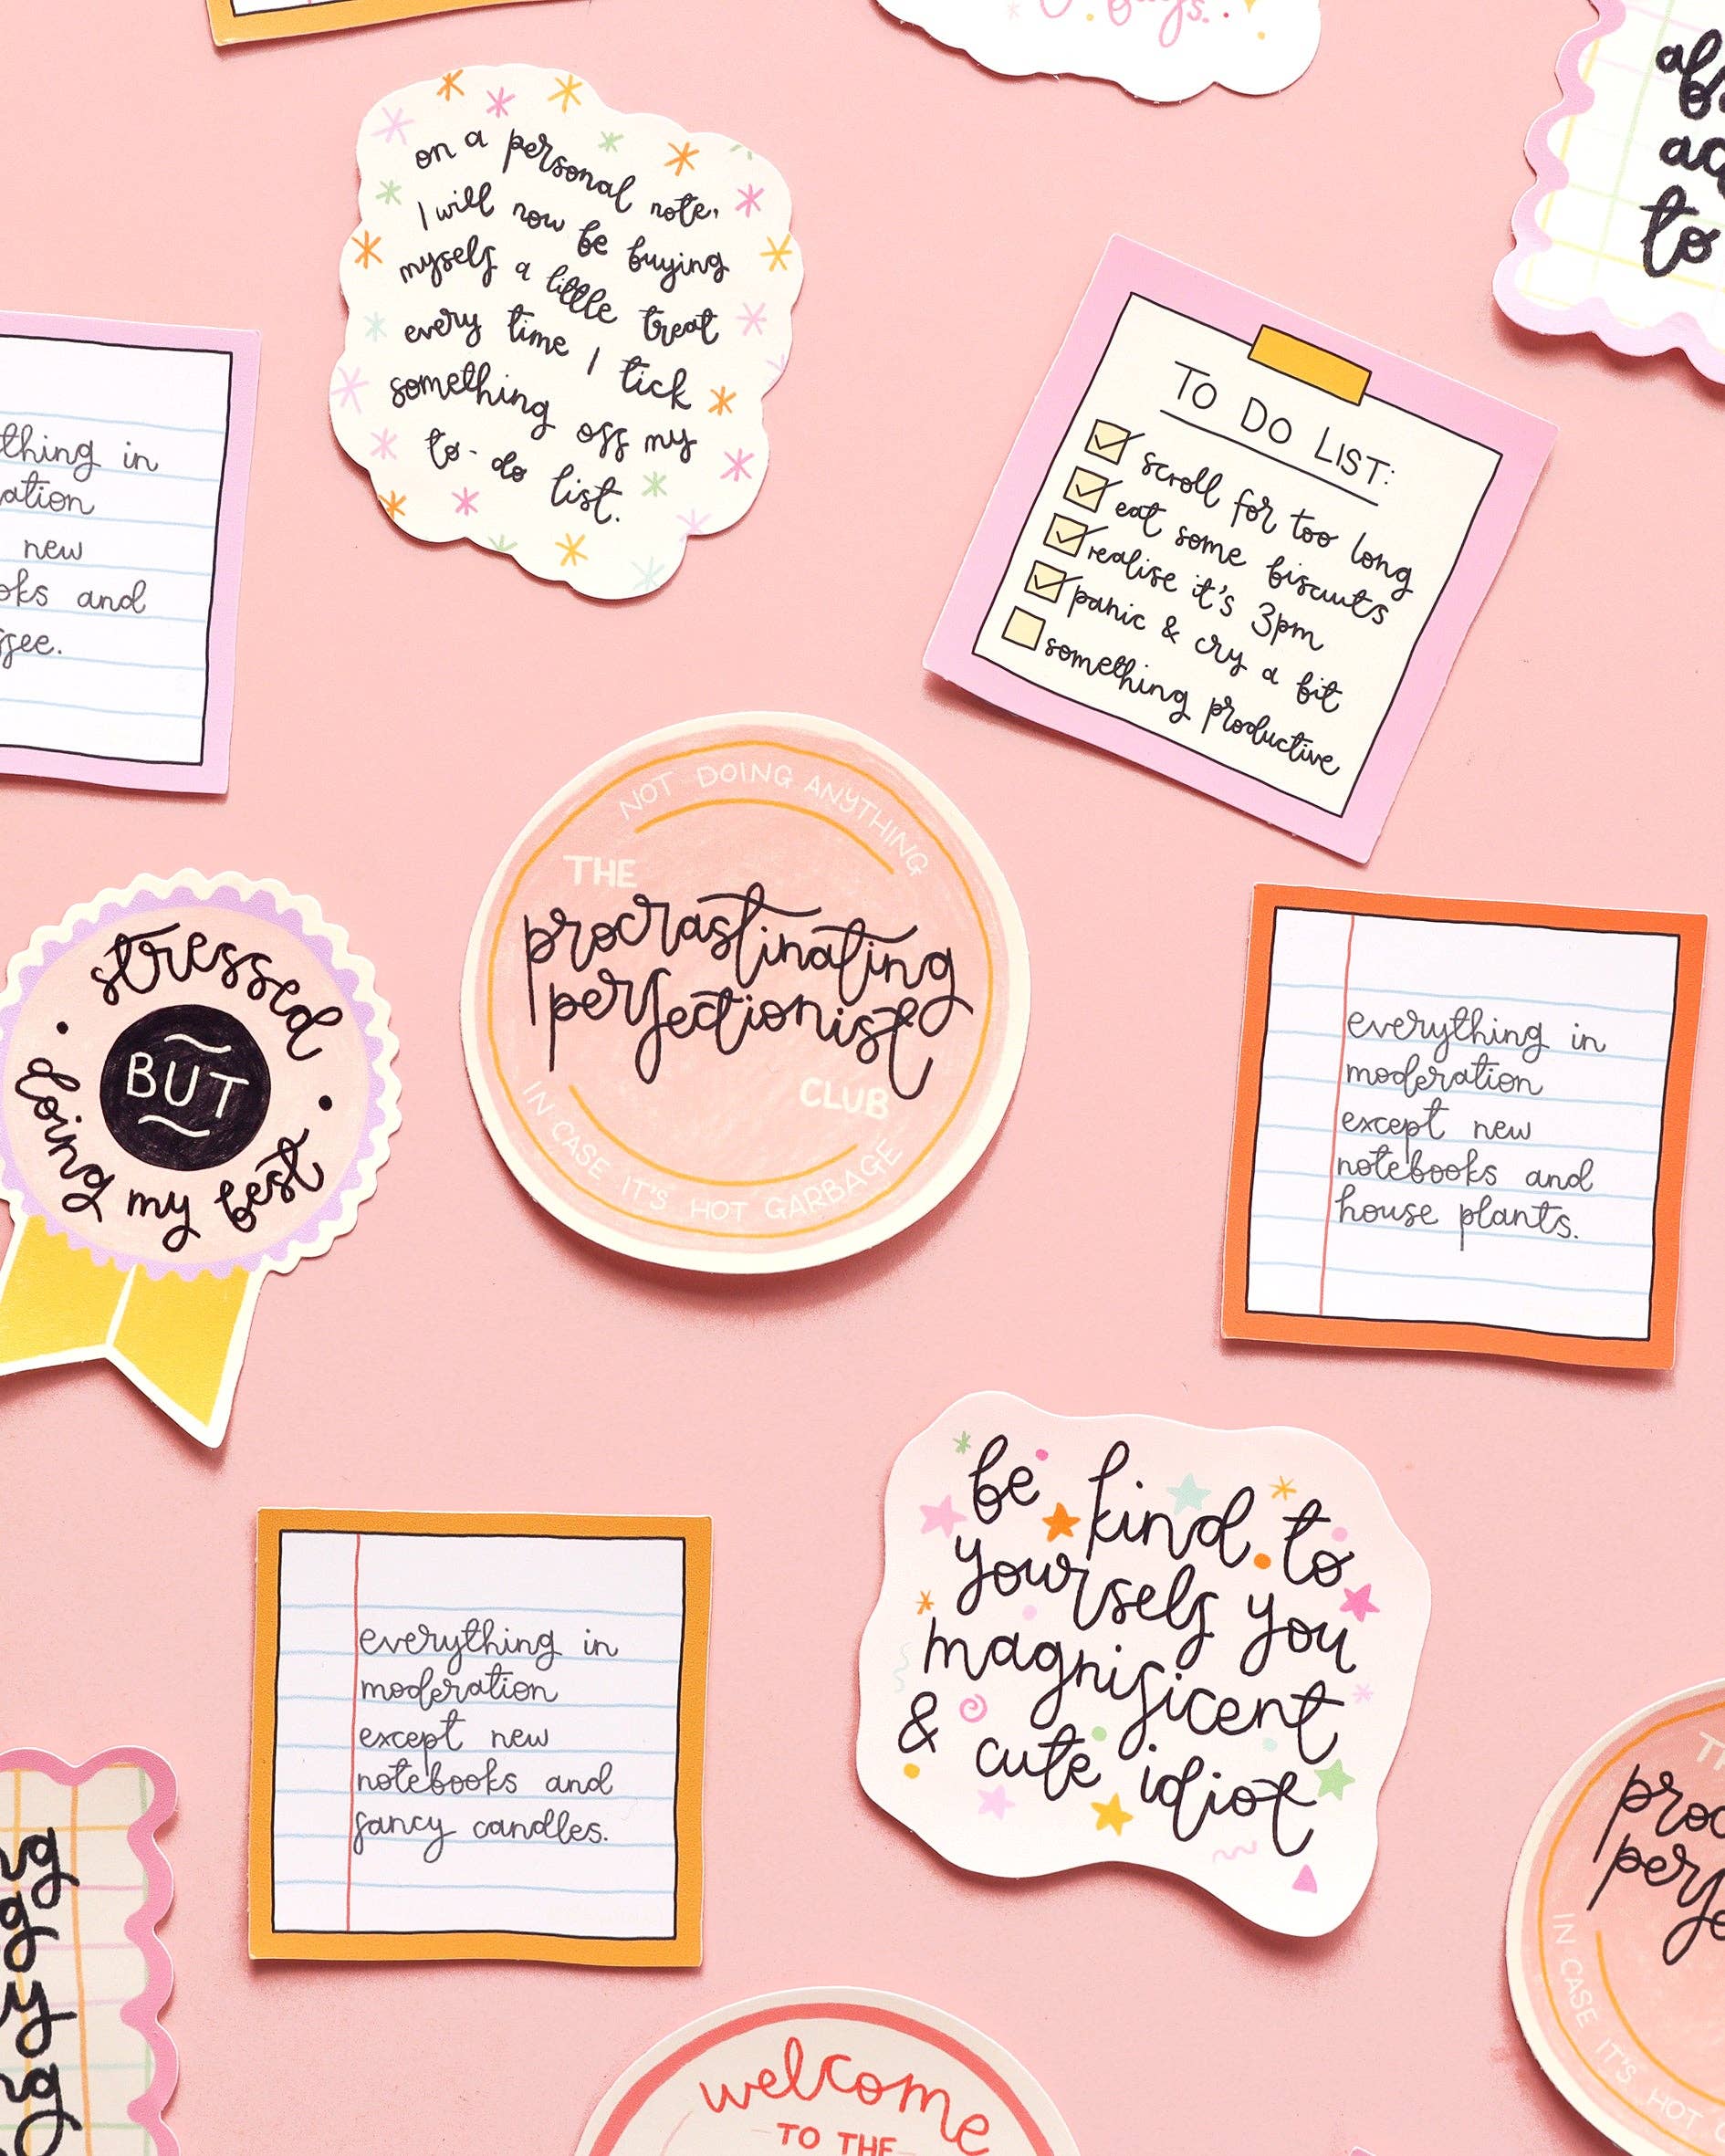 on a personal note,
I will now be buying
myself a little treat
every time I tick
something off my
to-do list.
to
thing in
new
and
TO DO LIST:
scroll for too long
eat some biscuits
realise it's 3pm
panic & cry a bit
something productive
NOT DOING ANYTHING
THE
procrastinating
perfectionist
CLUB
IN CASE IT'S HOT GARBAGE
stressed
BUT
doing my best
everything in
moderation
except new
notebooks and
house plants.
be kind to
yourself you
magnificent
& cute idiot
everything in
moderation
except new
notebooks and
fancy candles.
IN CASE IT'S HOT
welcome
TO THE